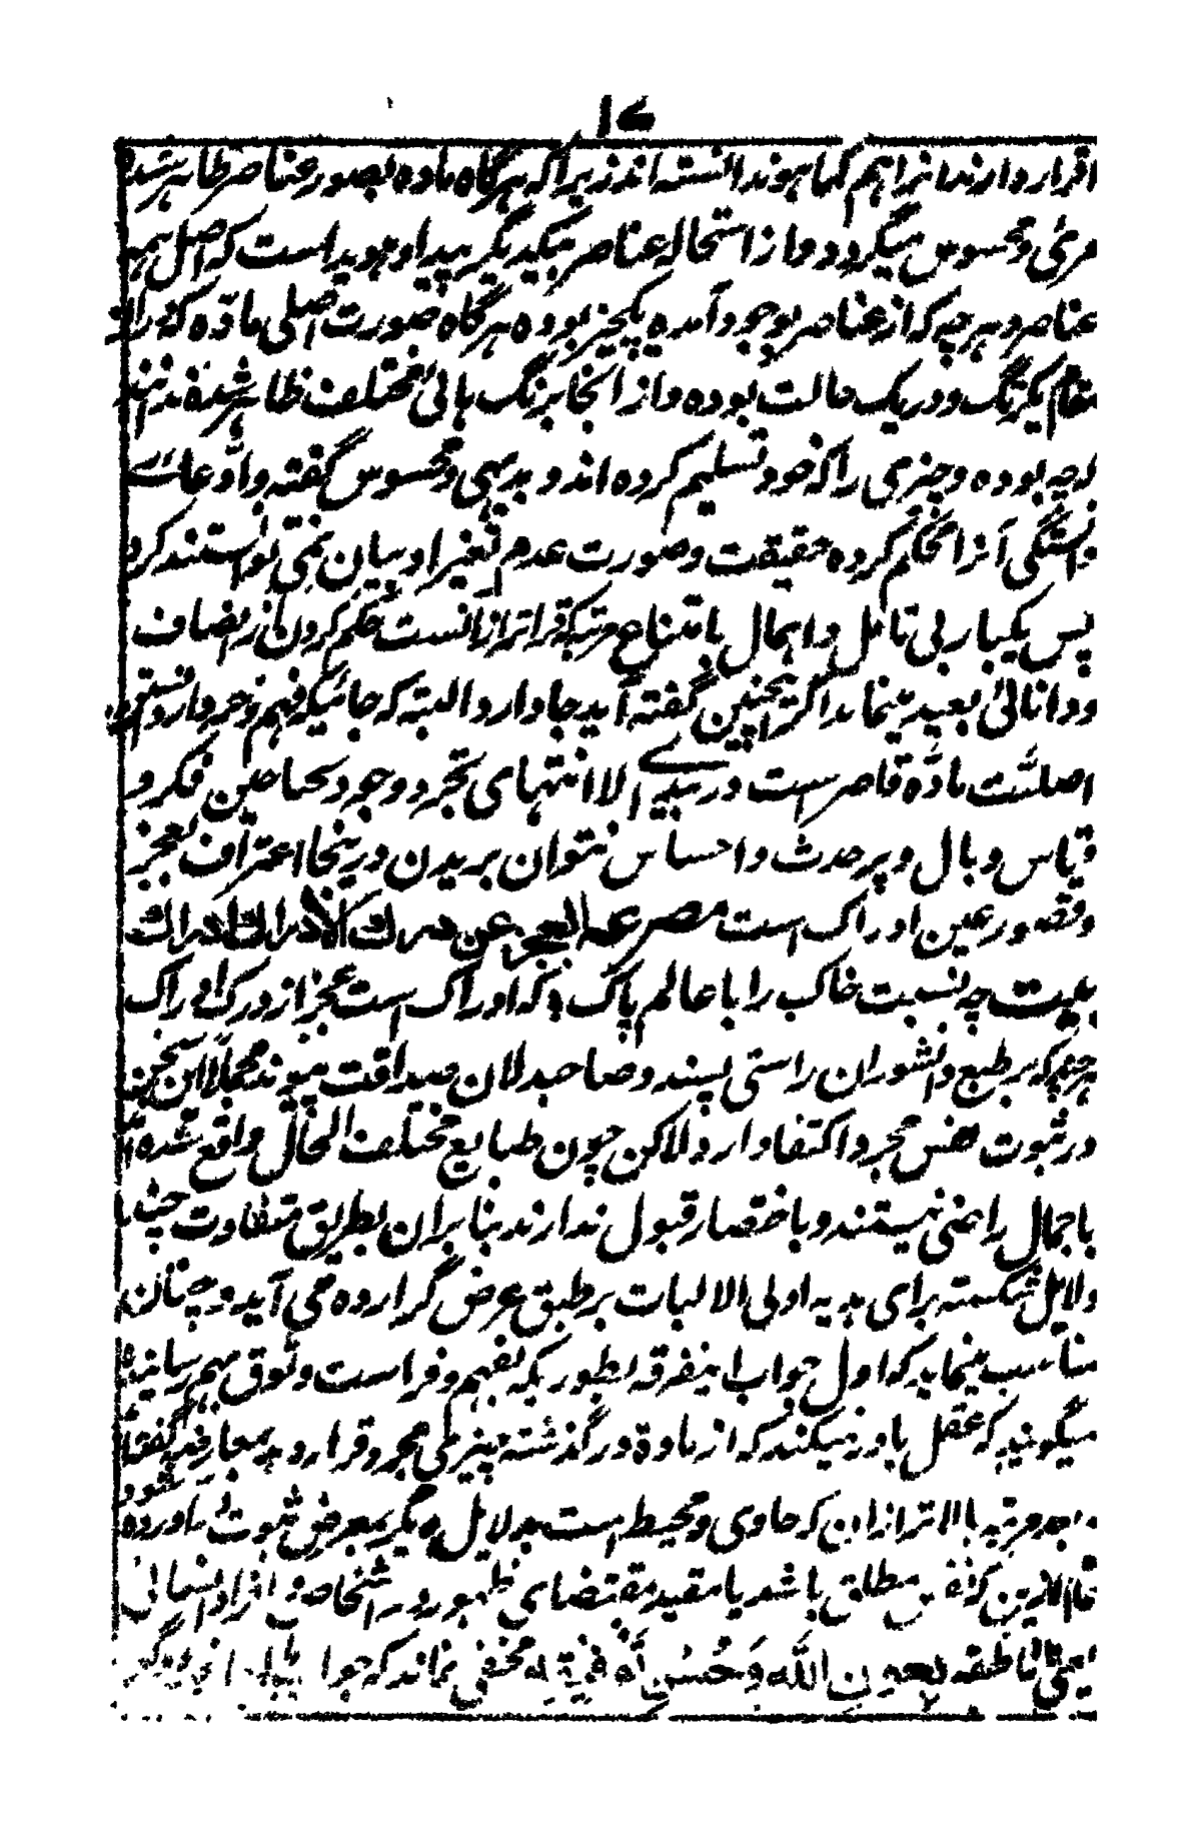 ۱۷
اقرار دارند انرا هم کما هو ندانسته اند زیرا که هرگاه ماده بصور عناصر ظاهر شده
مرئی و محسوس میگردد و از استحاله عناصر بیکدیگر پیدا و هویدا است که اصل همه
عناصر و هر چه که از عناصر بوجود آمده یکچیز بوده هرگاه صورت اصلی ماده که در ان
مقام یکرنگ و در یک حالت بوده و از آنجا برنگ هائی مختلف ظاهر شده ندانند
که چه بوده و چیزی را که خود تسلیم کرده اند و بدیهی و محسوس گفته و ادعائے
وانستگی آنرا محکم کرده حقیقت و صورت عدم تغیر او بیان نمی توانستند کرد
پس یکبار بی تامل و اہمال بامتناع مرتبکه فراتر ازانست حکم کردن از انصاف
و دانائی بعید مینماید اگر اینچنین گفته آید جا دارد البته که جائیکه فهم و خرد از دانستن
اصلیت ماده قاصر ست در بیدے الا انتهای تجرد وجود بجناحین فکر و
قیاس و بال و پر حدث و احساس نتوان پریدن درینجا اعتراف بعجز
و قصور عین ادراک است مصرعه العجز عن درك الادراك ادراك
بیت چه نسبت خاک را با عالم پاک ؛ که ادراک است عجز از درک ادراک
هرچند که بر طبع دانشوران راستی پسند و صاحبدلان صداقت پیوند مجملا این سخن
در ثبوت نفس مجرد اکتفا دارد لاکن چون طبایع مختلف الحال واقع شده اند
باجمال راضی نیستند و باختصار قبول ندارند بنابران بطریق متفاوت چند
دلایل شکسته برای هدیه اولی الالباب بر طبق عرض گزارده می آید و چنان
مناسب مینماید که اول جواب اینفرقه بطوریکه بفهم و فراست وثوق بهم رسانیده
میگویند که عقل باور نمیکند که از ماده در گذشته چیزی مجرد قرار دهد بمعارضه گفته شود
بعد مرتبه بالاتر ازان که حاوی و محیط است بدلایل دیگر بمعرض ثبوت در آورده
قائلا این که نفس مطلق باشد یا مقید مقتضای ظهور در اشخاص و افراد انسانی
یعنی ناطقه بعون الله وحسن توفیقه مخفی نماند که جواب